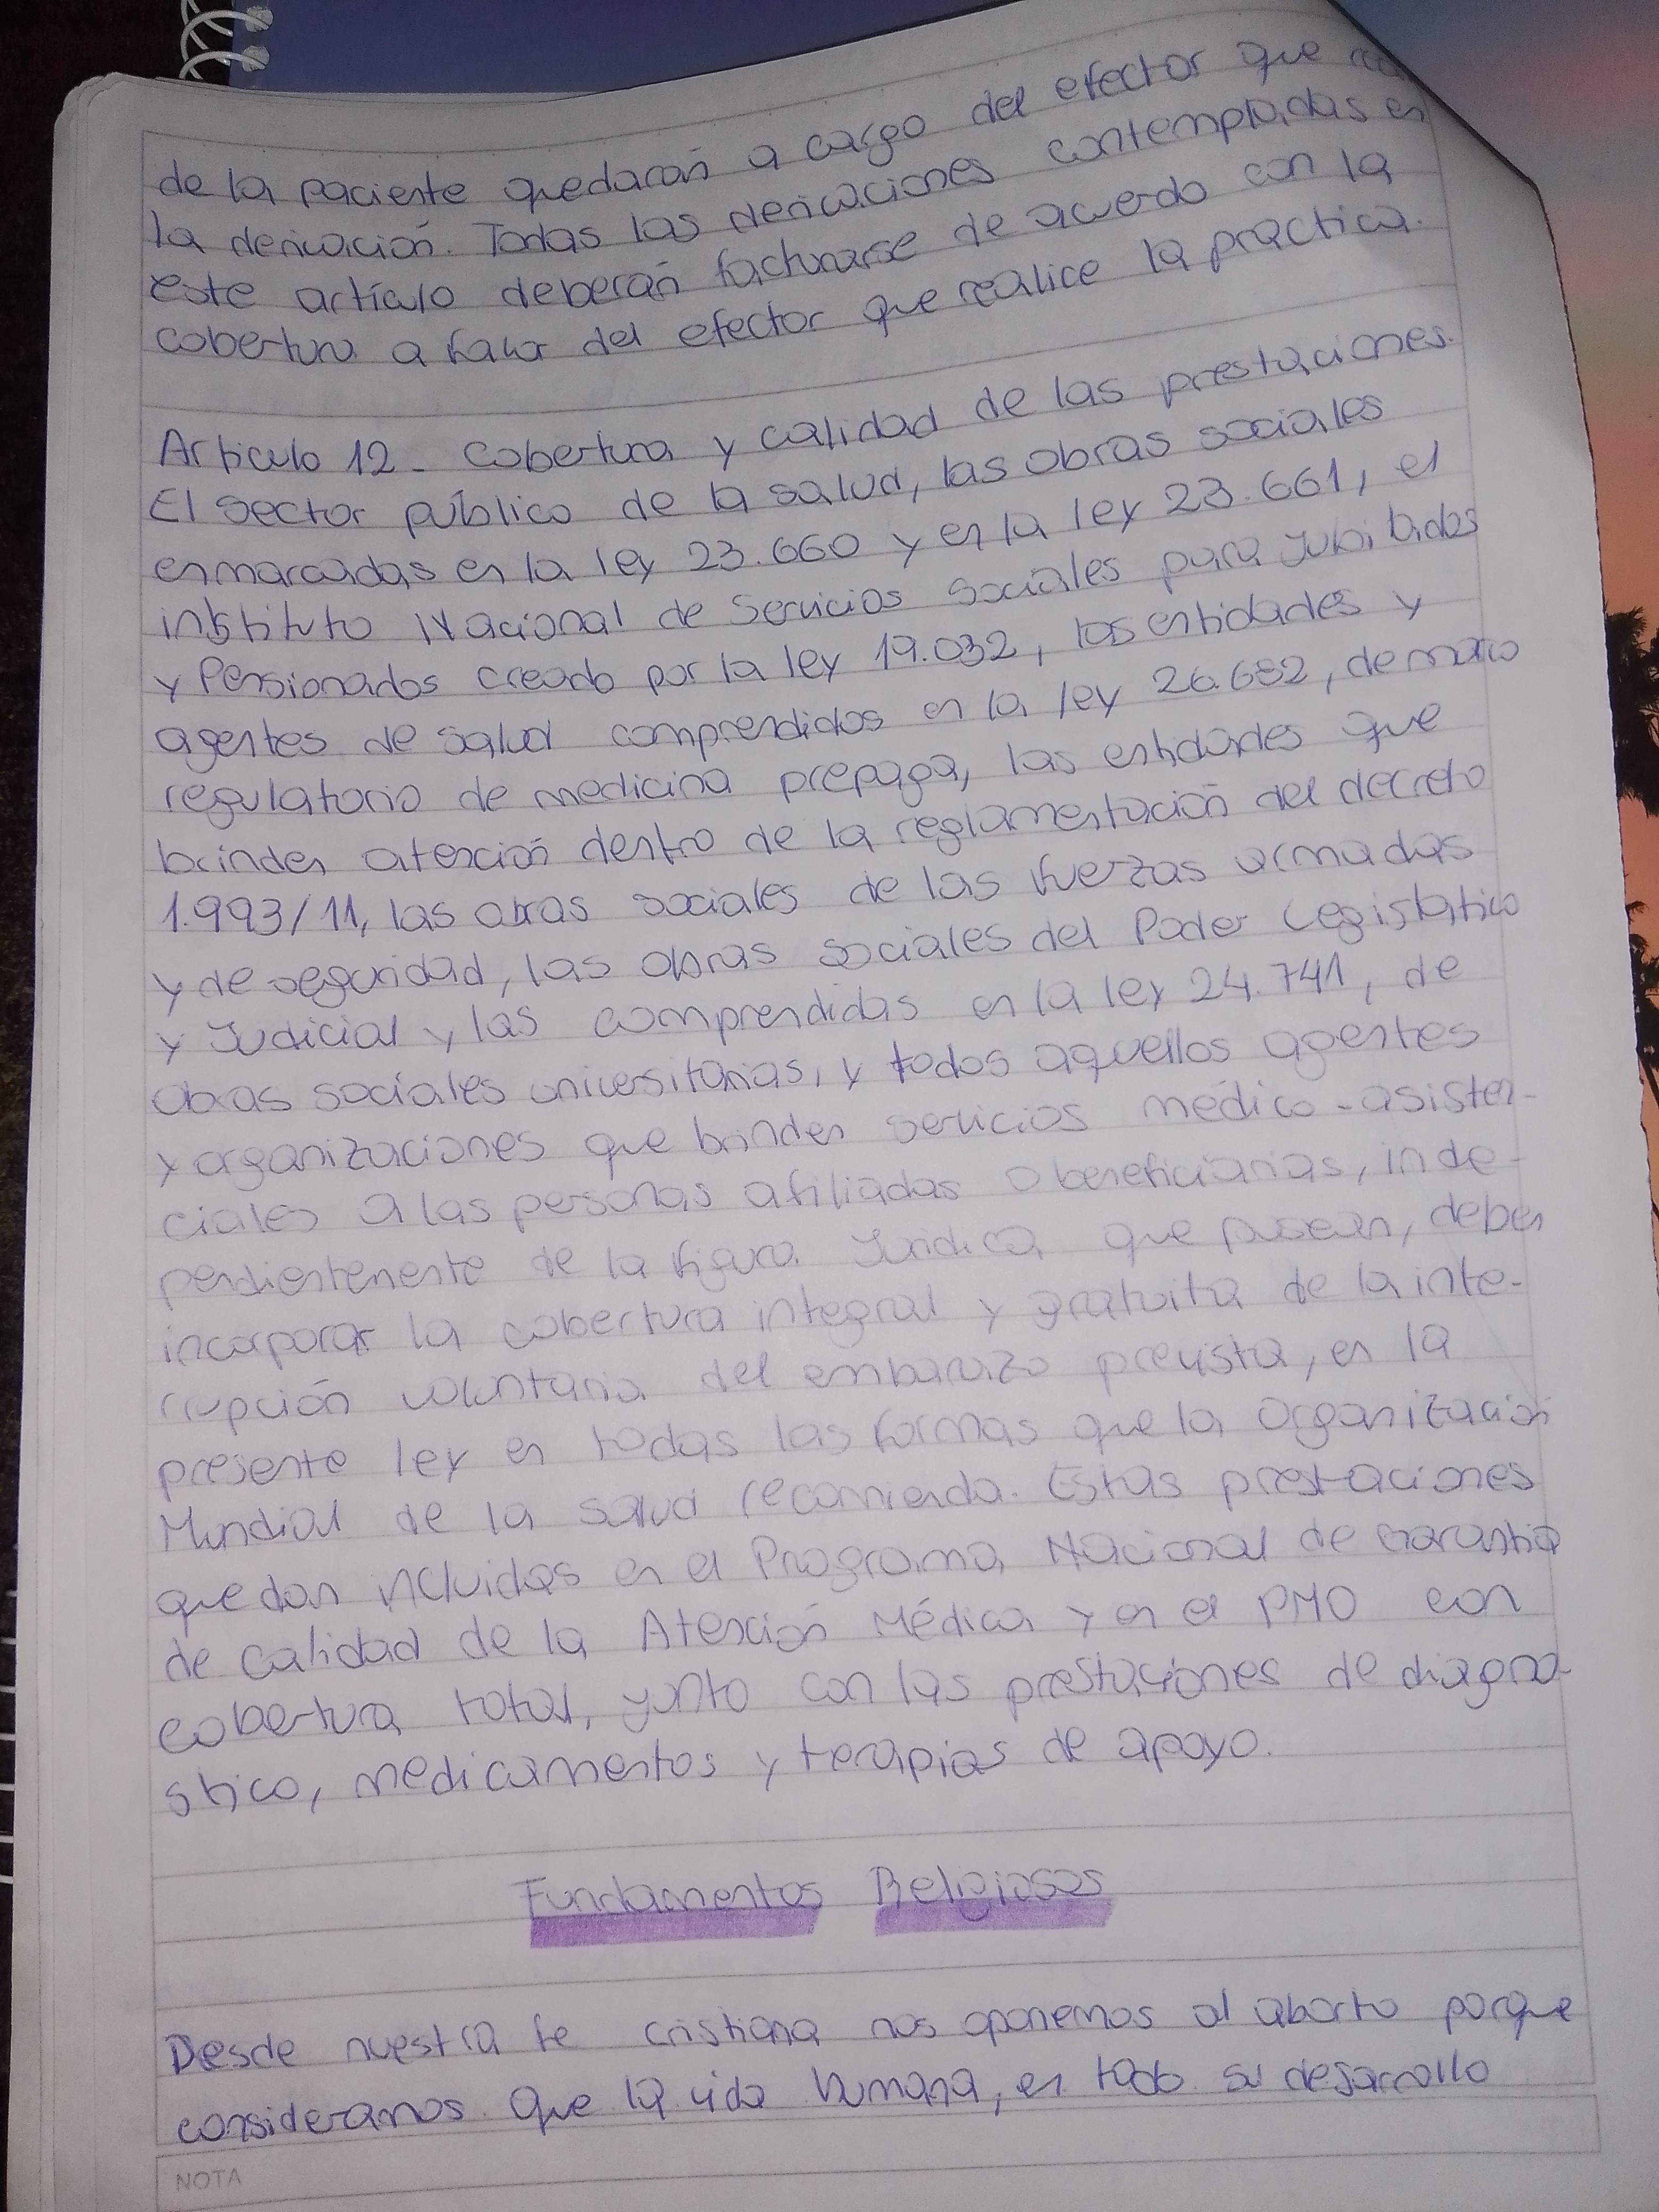 de la paciente quedarán a cargo del efector que
la derivación. Todas las derivaciones contempladas en
este artículo deberán facturarse de acuerdo con la
cobertura a favor del efector que realice la práctica.
Artículo 12 - Cobertura y calidad de las prestaciones.
El sector público de la salud, las obras sociales
enmarcadas en la ley 23.660 y en la ley 23.661, el
instituto Nacional de Servicios Sociales para Jubilados
y Pensionados creado por la ley 19.032, las entidades y
agentes de salud comprendidos en la ley 26.682, de marco
regulatorio de medicina prepaga, las entidades que
brinden atención dentro de la reglamentación del decreto
1.993/11, las obras sociales de las fuerzas armadas
y de seguridad, las obras sociales del Poder Legislativo
y Judicial y las comprendidas en la ley 24.741, de
obras sociales universitarias, y todos aquellos agentes
y organizaciones que brinden servicios médico-asisten-
ciales a las personas afiliadas o beneficiarias, inde-
pendientemente de la figura Jurídica que posean, deben
incorporar la cobertura integral y gratuita de la inte-
rrupción voluntaria del embarazo prevista, en la
presente ley en todas las formas que la Organización
Mundial de la salud recomienda. Estas prestaciones
quedan incluidas en el Programa Nacional de Garantía
de calidad de la Atención Médica y en el PMO con
cobertura total, junto con las prestaciones de diagnó-
stico, medicamentos y terapias de apoyo.
Fundamentos Religiosos
Desde nuestra fe cristiana nos oponemos al aborto porque
consideramos que la vida humana, en todo su desarrollo
NOTA